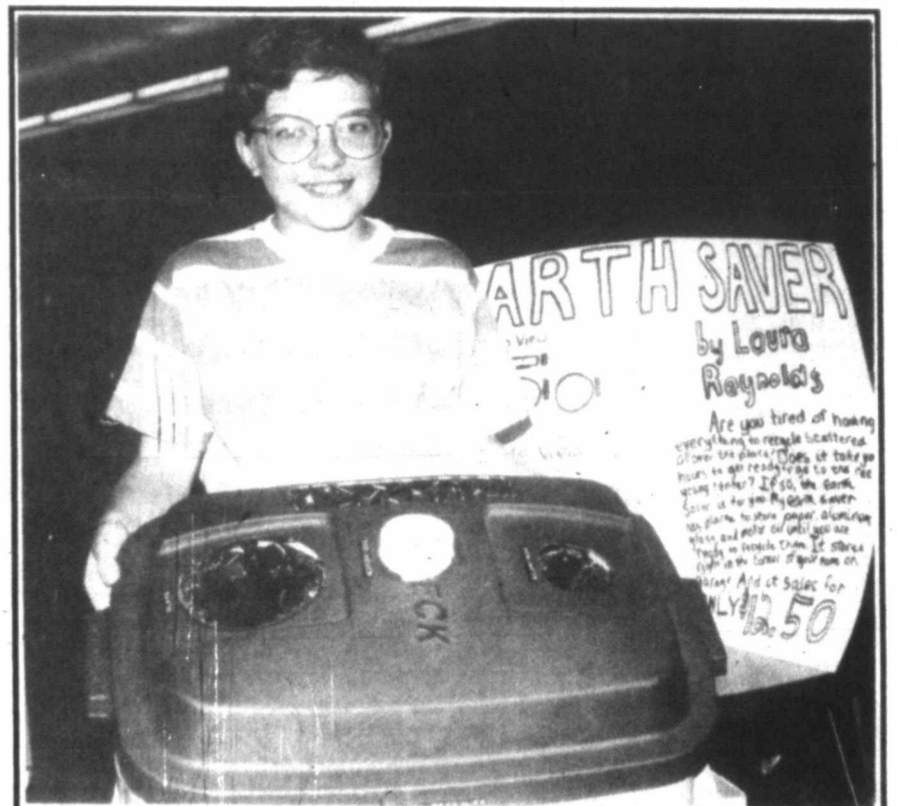 ARTH SAVER
by Laura
Reynolds
View
Are you tired of having
everything to recycle scattered
all over the place? Does it take yo
hours to get ready to go to the rec
ycling center? If so, the Earth
Saver is for you. My earth saver
has places to store paper, aluminum
glass and motor oil until you are
ready to recycle them. It stores
right in the corner of your home or
garage. And it sales for
NLY $12.50
View
CK